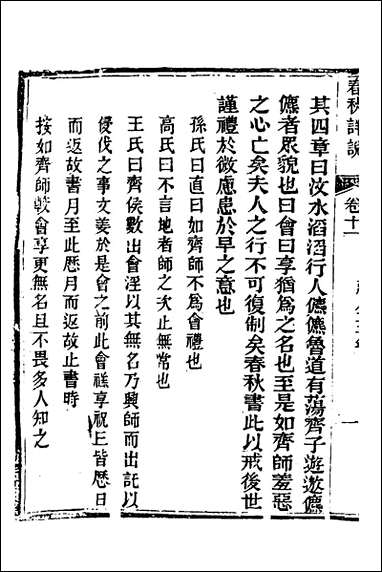 春秋詳說 卷十一
其四章曰汶水滔滔行人儦儦魯道有蕩齊子遊遨儦
儦者眾貌也曰會曰享猶為之名也至是如齊師羞惡
之心亡矣夫人之行不可復制矣春秋書此以戒後世
謹禮於微慮患於早之意也
孫氏曰直曰如齊師不為會禮也
高氏曰不言地者師之次止無常也
王氏曰齊侯數出會淫以其無名乃興師而出託以
侵伐之事文姜於是會之前此會禚享祝丘皆歷日
而返故書月至此歷月而返故止書時
按如齊師較會享更無名且不畏多人知之
一